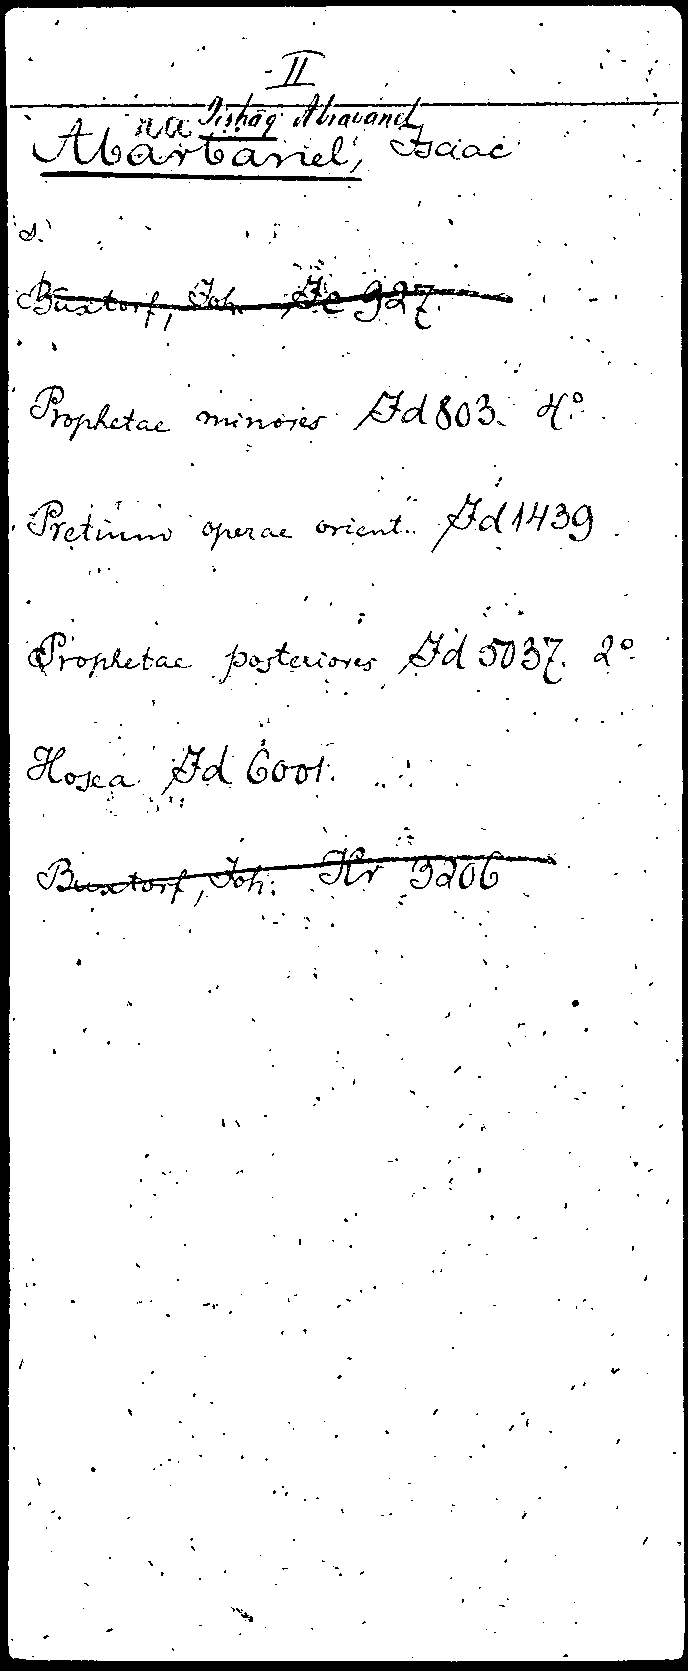 II
na Jishaq Abravanel
Abarbanel, Isaac
s.
Buxtorf, Joh. Jc 927.
Prophetae minores Jd 803. 4°.
Pretium operae orient. Jd 1439
Prophetae posteriores Jd 5037. 2°.
Hosea Jd 6001.
Buxtorf, Joh. Kr 3206